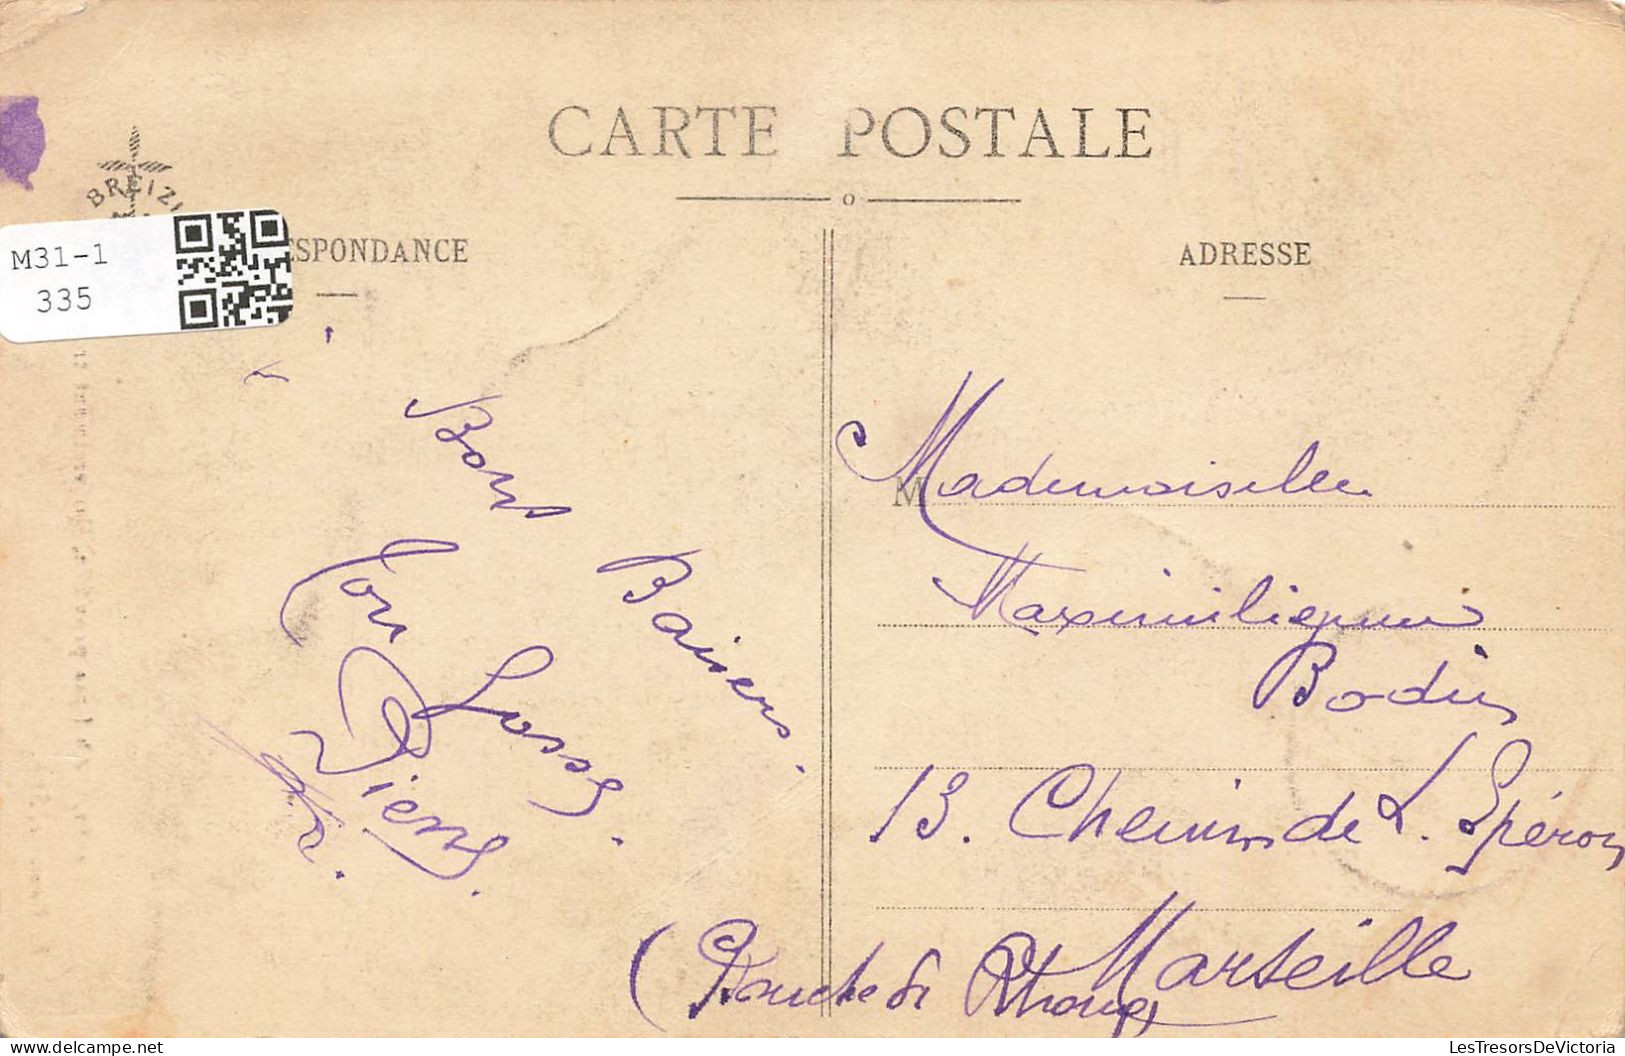 CARTE POSTALE
BREIZ
M31-1
335
ESPONDANCE
ADRESSE
Bons Baisers.
Ton Gosse.
Pierre.
M
Mademoiselle
Maximilienne
Bodin
13. Chemin de L. Epéron
Marseille
(Bouche du Rhone)
LesTresorsDeVictoria
www.delcampe.net